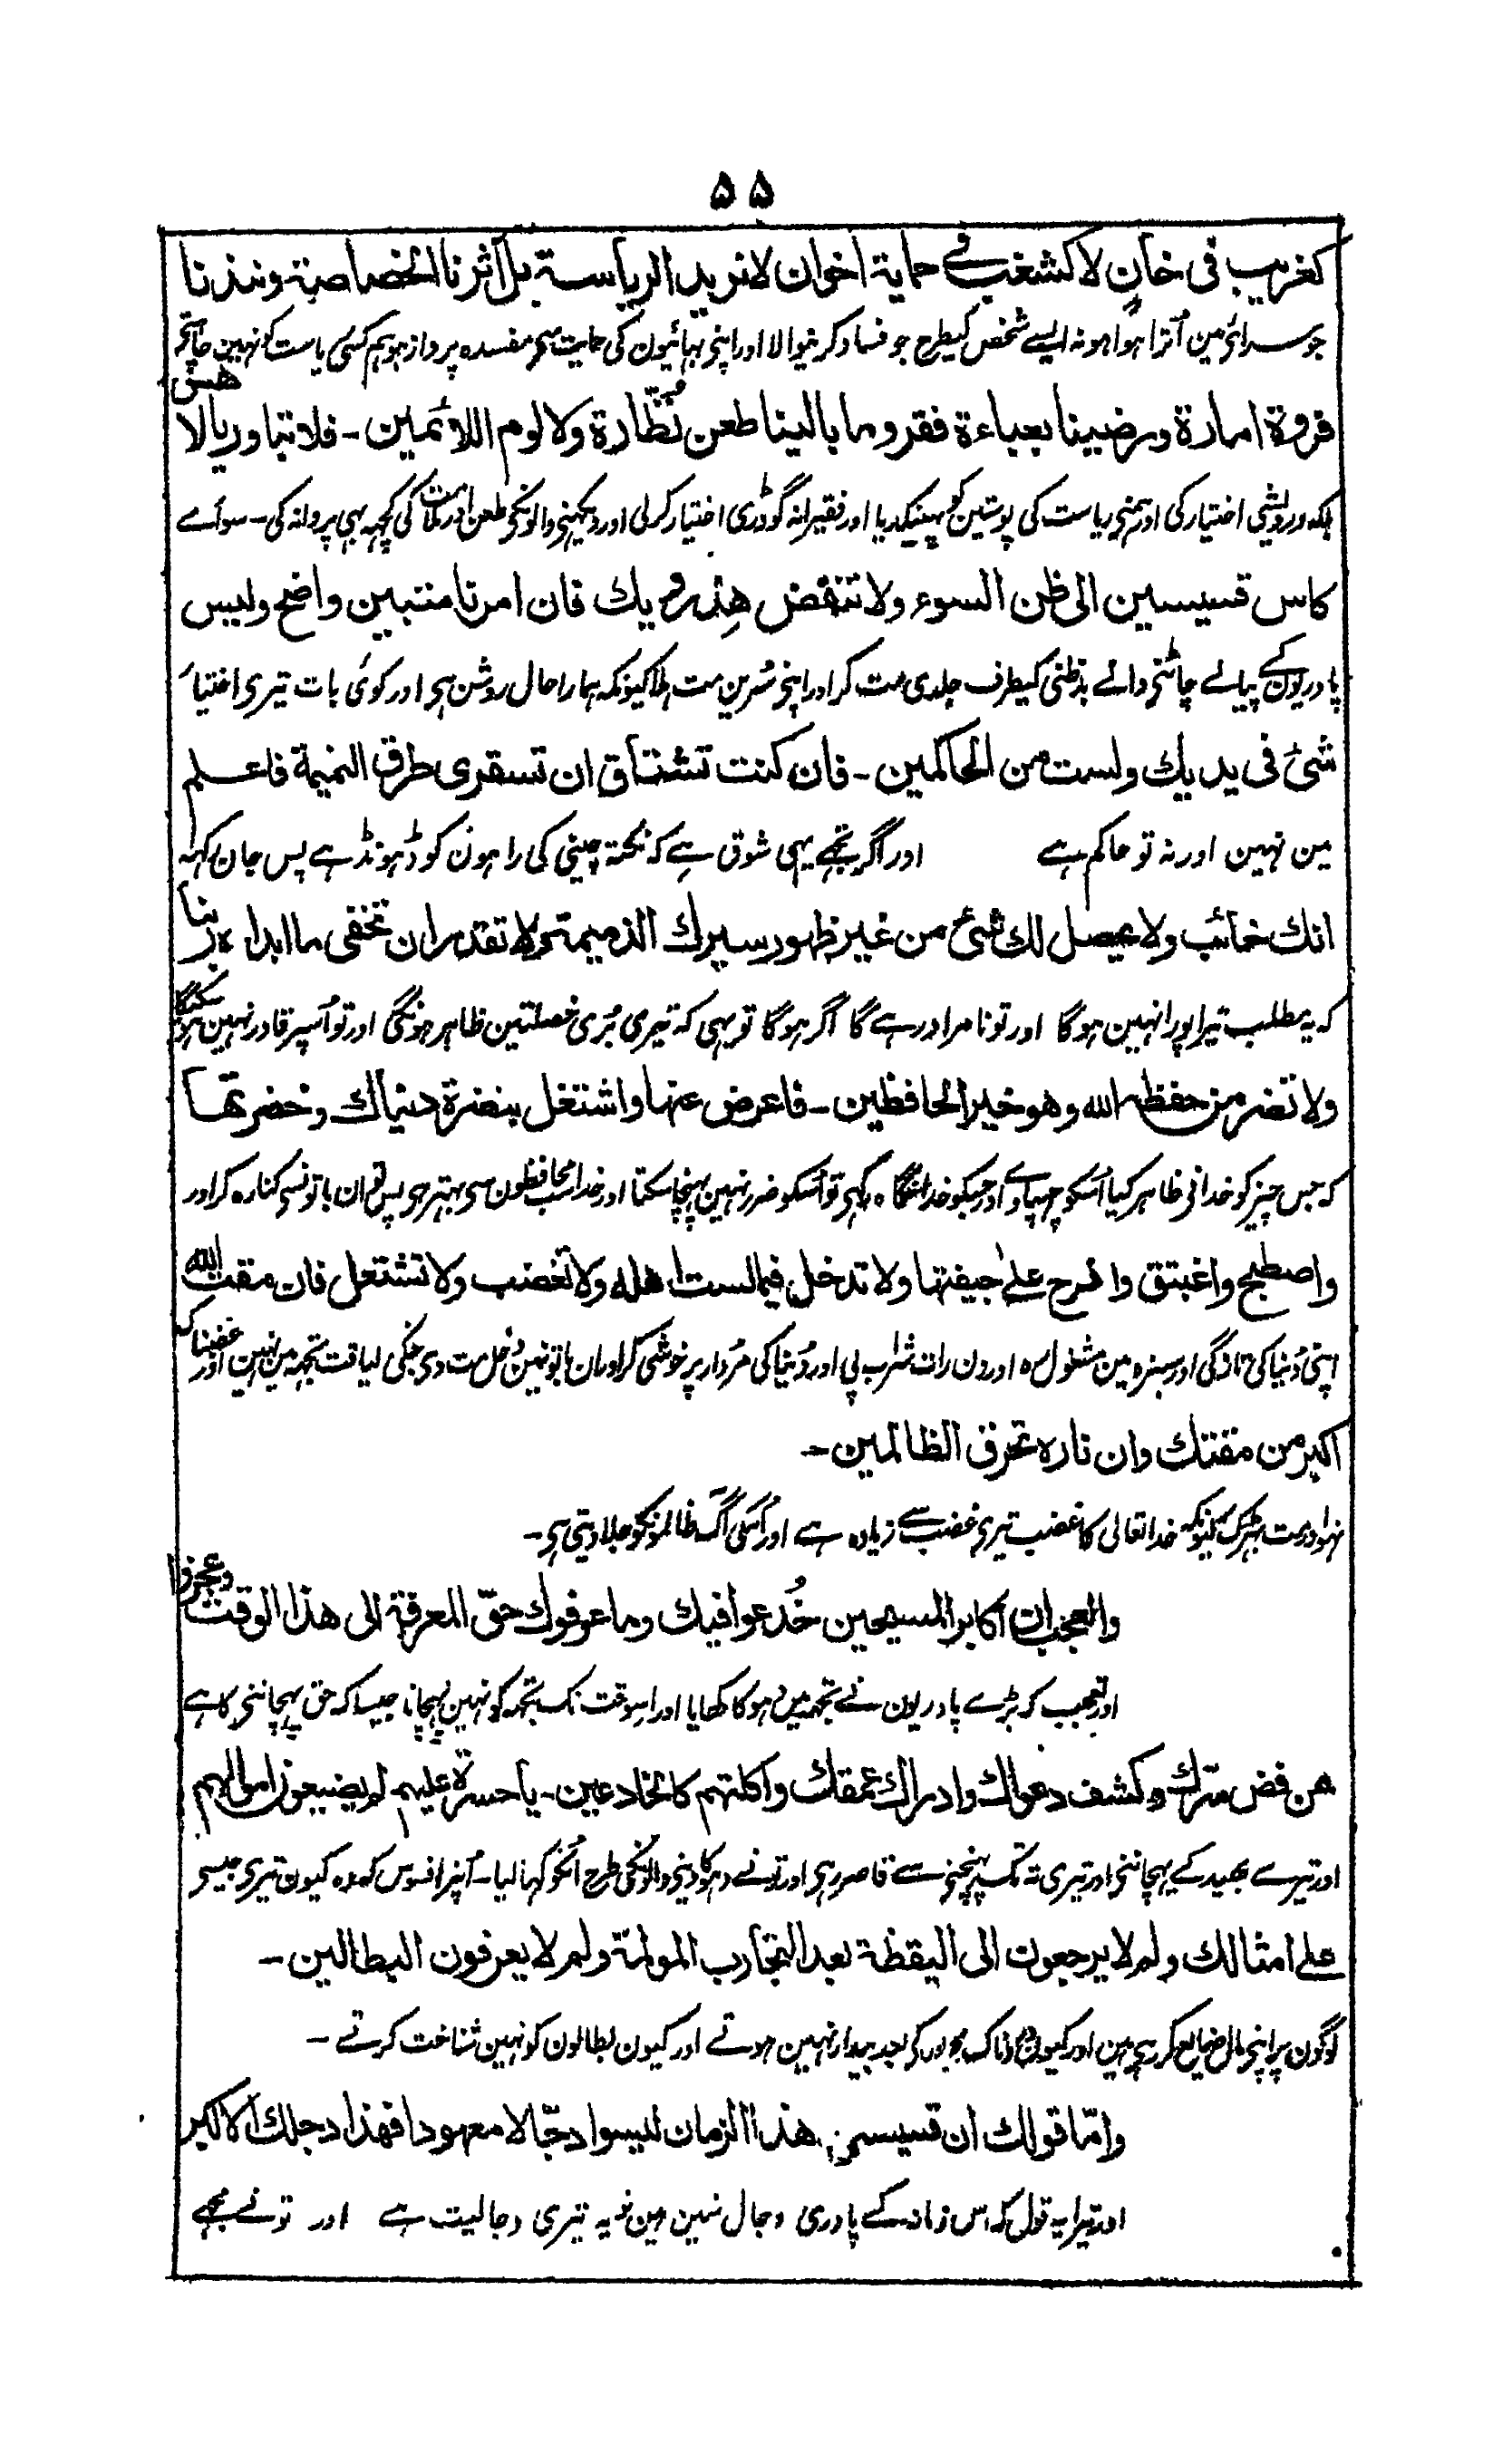 ۵۵
كغريب فى خانٍ لا كشغب فى حماية اخوان لا نريد الرياسة بل آثرنا الخصاصة ونبذنا
جو سرائے مین اُترا ہوا ہو نہ ایسے شخص کیطرح جو فساد کرنیوالا اور اپنی بہائیون کی حمایت مین مفسدہ پرداز ہو ہم کسی ریاست کو نہین چاہتے
فروة امارة ورضينا بعباءة فقر وما بالينا طعن نُظّارة ولا لوم اللائمين - فلا تبادر يا لاحس
بلکہ درویشی اختیار کی اور ہمنے ریاست کی پوستین کو پھینکدیا اور فقیرانہ گودڑی اختیار کرلی اور دیکھنے والونکی طعن اور ملامت کی کچہہ بہی پروا نہ کی - سو اے
كاس قسيسين الى ظن السوء ولا تنفض مِذرويك فان امرنا متبين واضح وليس
پادریون کے پیالے چاٹنے والے بدظنی کیطرف جلدی مت کر اور اپنی سُرین مت ہلا کیونکہ ہمارا حال روشن ہی اور کوئی بات تیری اختیار
شئ فى يديك ولست من الحاكمين - فان كنت تشتاق ان تستقرى طرق النميمة فاعلم
مین نہین اور نہ تو حاکم ہے اور اگر تجھے یہی شوق ہے کہ نکتہ چینی کی راہون کو ڈہونڈے پس جان کہہ
انك خائب ولا يحصل لك شئ من غير ظهور سيرك الذميمة ولا تقدر ان تخفى ما ابداه ربنا
کہ یہ مطلب تیرا پورا نہین ہوگا اور تو نامراد رہے گا اگر ہوگا تو یہی کہ تیری بُری خصلتین ظاہر ہونگی اور تو اُسپر قادر نہین ہو سکیگا
ولا تضر من حفظه الله وهو خير الحافظين - فاعرض عنها واشتغل بنضرة دنياك وخضرتها
کہ جس چیز کو خدا نی ظاہر کیا اُسکو چہپاوے اور جسکو خدا نگاہ رکہی تو اُسکو ضرر نہین پہنچا سکتا اور خدا سب محافظون سی بہتر ہی پس تو ان باتونسی کنارہ کر اور
واصطبح واغتبق وافرح على جيفتها ولا تدخل فيما لست اهله ولا تغضب ولا تشتعل فان مقت الله
اپنی دُنیا کی تازگی اور سبزہ مین مشغول رہ اور دن رات شراب پی اور دُنیا کی مُردار پر خوشی کر اور ان باتونمین دخل مت دی جنکی لیاقت تجہہ مین نہین اور غضبناک
اكبر من مقتك وان ناره تحرق الظالمين -
نہو اور مت بہڑک کیونکہ خدا تعالی کا غضب تیری غضب سے زیادہ ہے اور اُسکی آگ ظالمونکو جلا دیتی ہی -
والعجب ان اكابر المسيحين خُدعوا فيك وما عرفوك حقّ المعرفة الى هذا الوقت وعجزوا
اور تعجب کہ بڑے پادریون نے تجہہ مین دہوکا کھایا اور اسوقت تک تجہہ کو نہین پہچانا جیسا کہ حق پہچاننے کا ہے
عن فض سرك وكشف دعواك وادراك عمقك واكلتهم كالخادعين - يا حسرة عليهم لم يضيعون اموالهم
اور تیرے بھید کے پہچاننی اور تیری تہ تک پہنچنے سے قاصر رہی اور تو نے دہوکا دینی والونکی طرح اُنکو کہا لیا - اُنپر افسوس کہ وہ کیون تیری جیسی
على امثالك ولم لا يرجعون الى اليقظة بعد التجارب المولمة ولم لا يعرفون البطالين -
لوگون پر اپنی مال ضایع کر رہی ہین اور کیون دردناک تجربون کی بعد بیدار نہین ہوتے اور کیون بطالون کو نہین شناخت کرتے -
وامّا قولك ان قسيسى هذا الزمان ليسوا دجّالا معهودا فهذا دجلك الاكبر
اور تیرا یہ قول کہ اس زمانہ کے پادری دجال نہین ہین یہ تیری دجالیت ہے اور تو نے مجھے